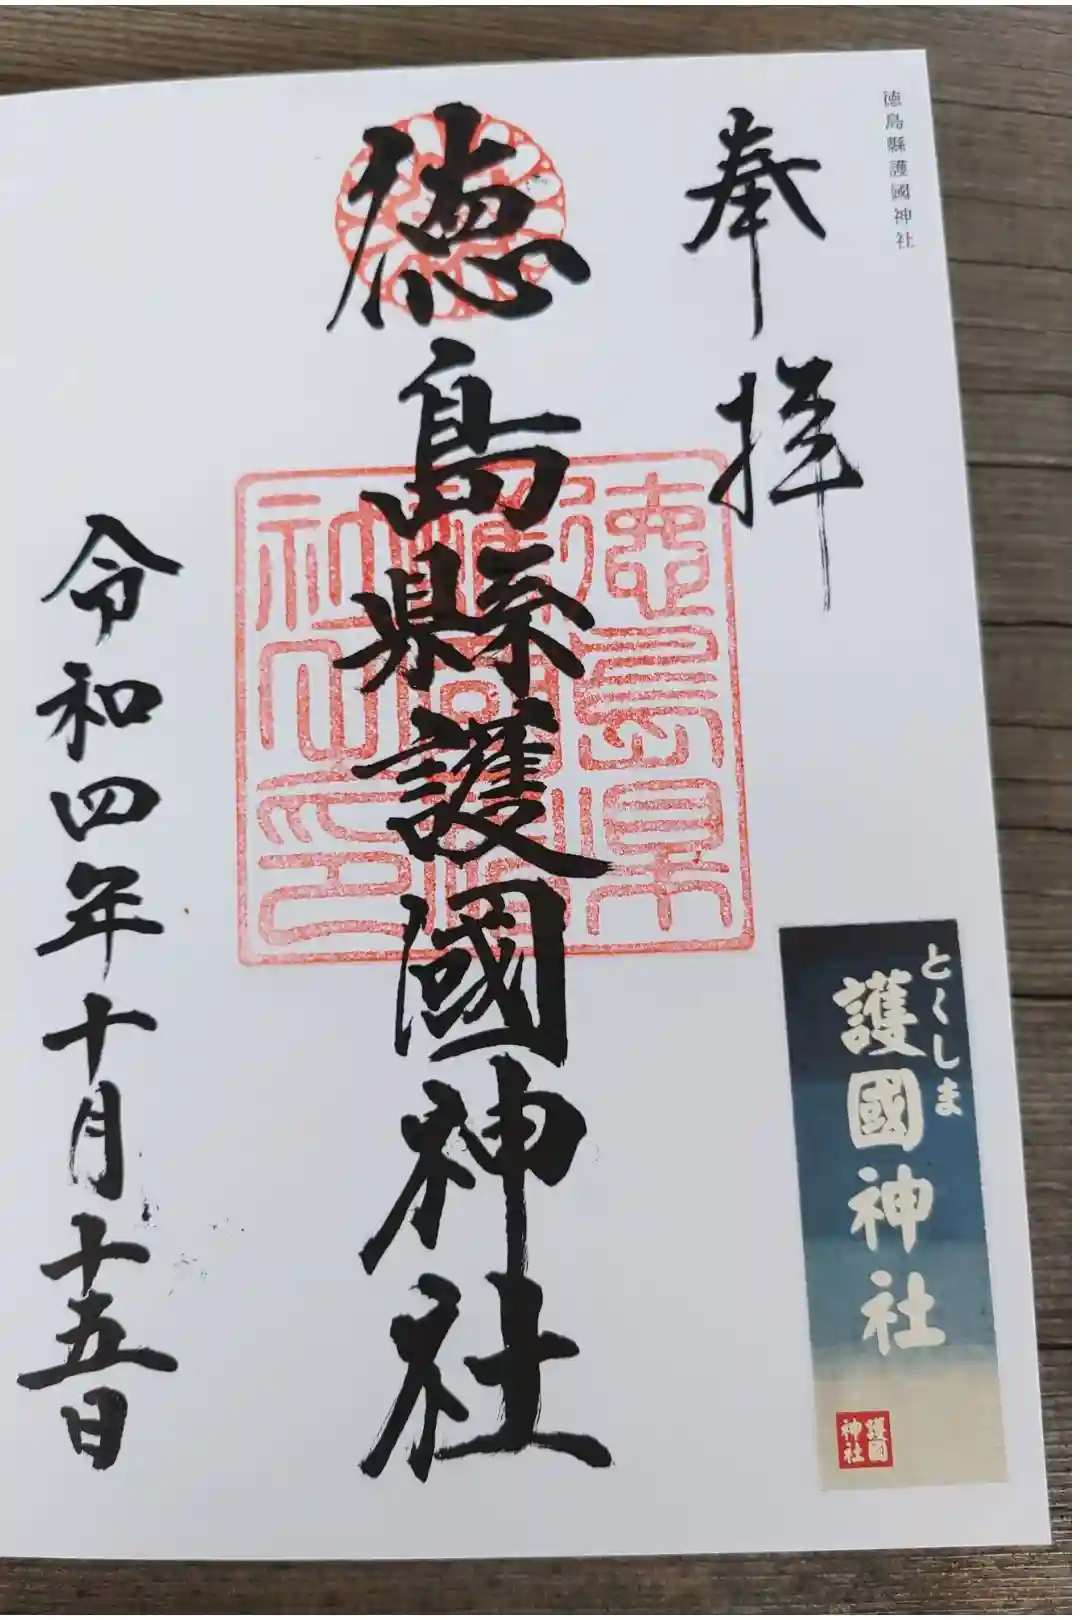 徳島縣護國神社
奉拝
徳島縣護國神社
令和四年十月十五日
とくしま
護國神社
護國
神社